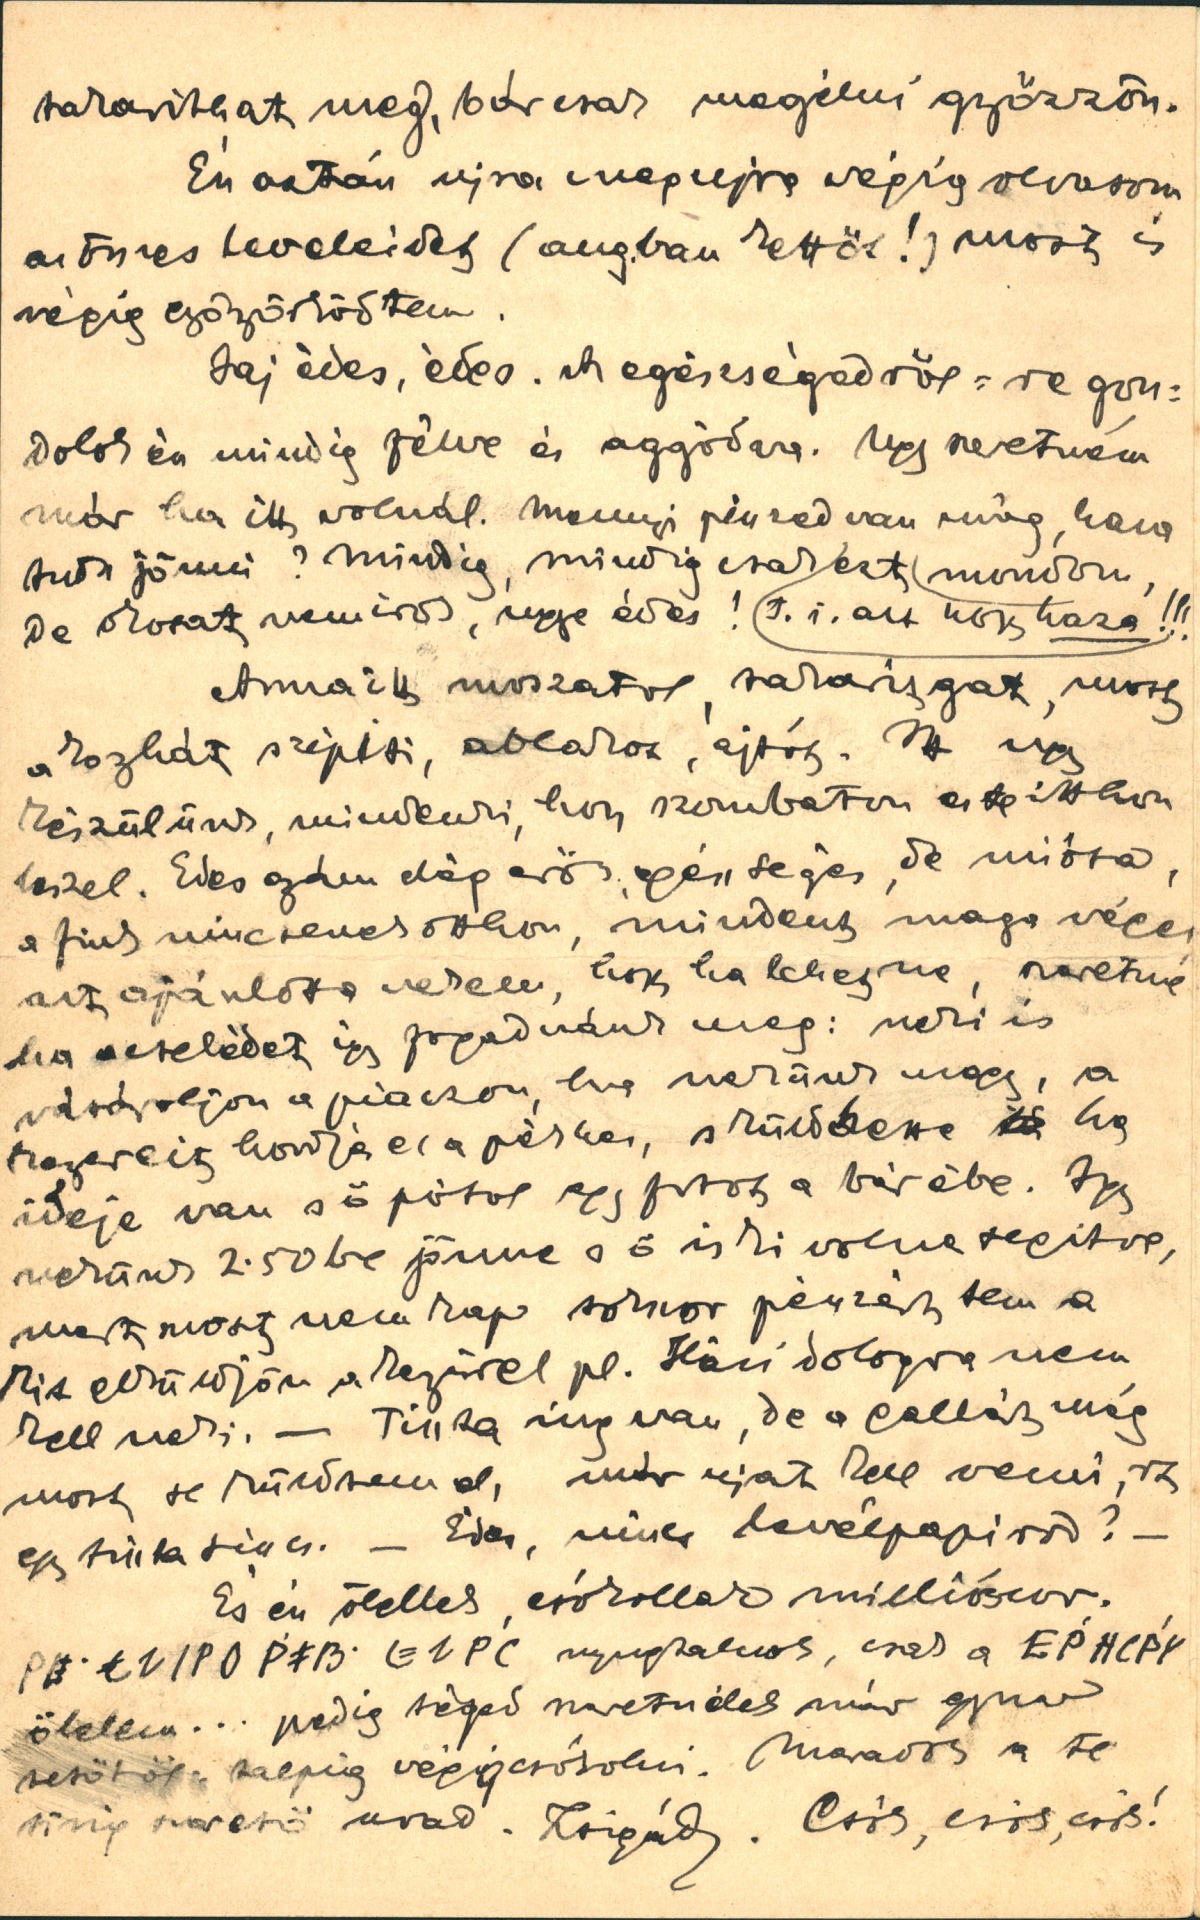 takaríthat meg, bárcsak megélni győzzön.
Én aztán ujra meg ujra végig olvasom
az összes leveleidet (aug.ban kettőt!) most is
végig gyönyörködtem.
Jaj édes, édes. A egészségedről = re gon=
dolok én mindig félve és aggódva. Ugy szeretném
már ha itt volnál. Mennyi pénzed van még, haza
tudsz jönni? Mindig, mindig csak ezt mondom,
de okosat nem írok, ugye édes! T. i. azt hogy haza!!!
Anna itt mosgatol, takarítgat, most
a konyhát szépíti, ablakot, ajtót. Itt ugy
készülünk, mindenki, hogy szombaton este itthon
leszel. Édes anyám elég erős, egészséges, de mióta
a fiuk nincsenek otthon, mindent maga végez
azt ajánlotta nekem, hogy ha lehetne, szeretné
ha cselédet így fogadnánk meg: neki is
vásároljon a piaczon, ha nekünk megy, a
kenyereit hordja el a pékhez, s küldhesse ha
ideje van s ő pótol egy frtot a bérébe. Így
nekünk 2·50be jönne s ő is ki volna segitve,
mert most nem kap sokszor pénzért sem a
kit elküldjön a kenyérrel pl. Házi dologra nem
kell neki. — Tiszta ing van, de a gallért még
most se küldtem el, már ujat kell venni, itt
egy tiszta sincs. — Édes, nincs levélpapirod? —
És én ölellek, csókollak milliószor.
nyugtalnok, csak a
ölelem... pedig téged szeretnélek már egyszer
tetőtől talpig végigcsókolni. Maradok a te
sirig szerető urad. Zsigád. Csók, csók, csók!